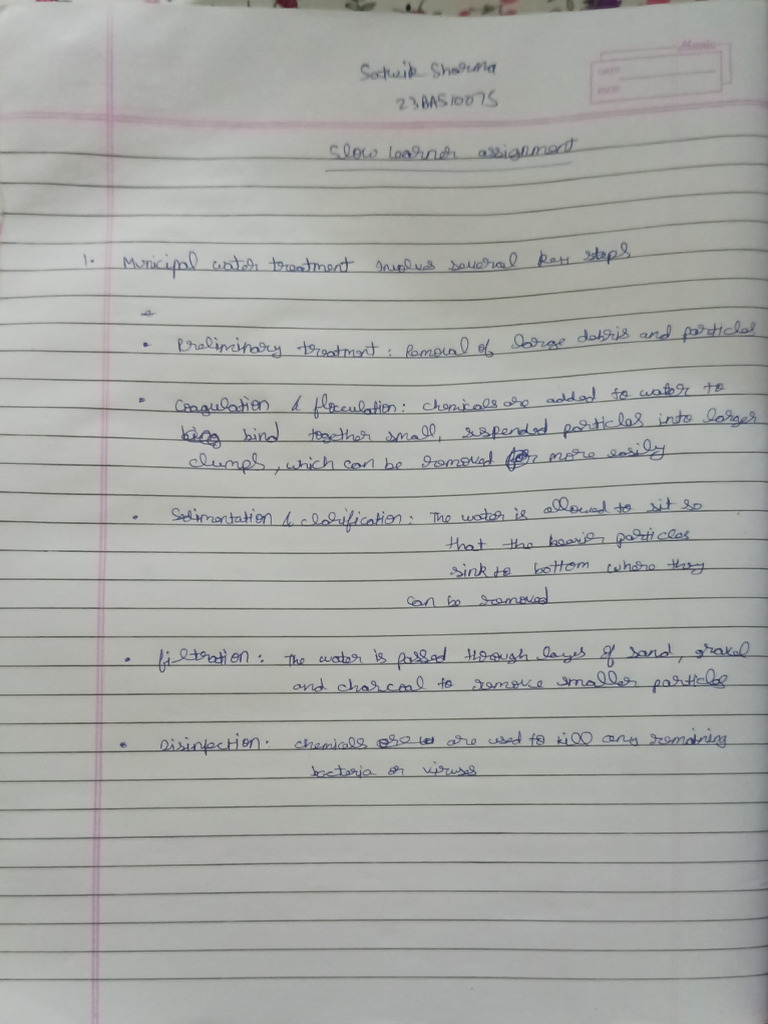 Satwik Sharma
23BAS10075
DATE
PAGE
Slow learner assignment
1. Municipal water treatment involves several key steps
• Preliminary treatment: Removal of large debris and particles
• Coagulation & flocculation: chemicals are added to water to
bind together small, suspended particles into larger
clumps, which can be removed more easily
• Sedimentation & clarification: The water is allowed to sit so
that the heavier particles
sink to bottom where they
can be removed
• filtration: The water is passed through layes of sand, gravel
and charcoal to remove smaller particles
• Disinfection: chemicals are used to kill any remaining
bacteria or viruses